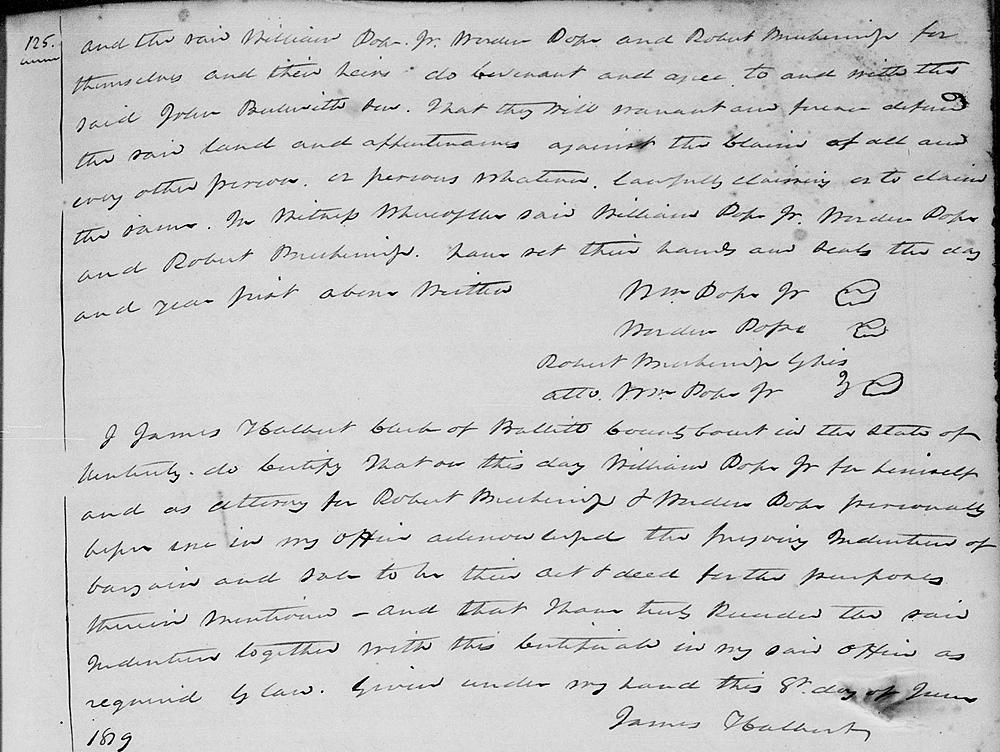 125.
and the said William Pope Jr. Worden Pope and Robert Breckenridge for
themselves and their heirs do covenant and agree to and with the
said John Beckwith Sen. That they will warrant and forever defend
the said land and appurtenances against the claim of all and
every other person, or persons whatever, lawfully claiming or to claim
the same. In Witness Whereof the said William Pope Jr. Worden Pope
and Robert Breckenridge. have set their hands and seals the day
and year first above written
Wm Pope Jr
Worden Pope
Robert Breckenridge by his
atto. Wm Pope Jr
I James Halbert Clerk of Bullitt County Court in the State of
Kentucky. do certify that on this day William Pope Jr for himself
and as attorney for Robert Breckenridge & Worden Pope personally
before me in my office acknowledged the foregoing Indenture of
bargain and sale to be their act & deed for the purposes
therein mentioned – and that I have truly Recorded the said
Indenture together with this certificate in my said office as
required by law. Given under my hand this 8th. day of June
1819
James Halbert